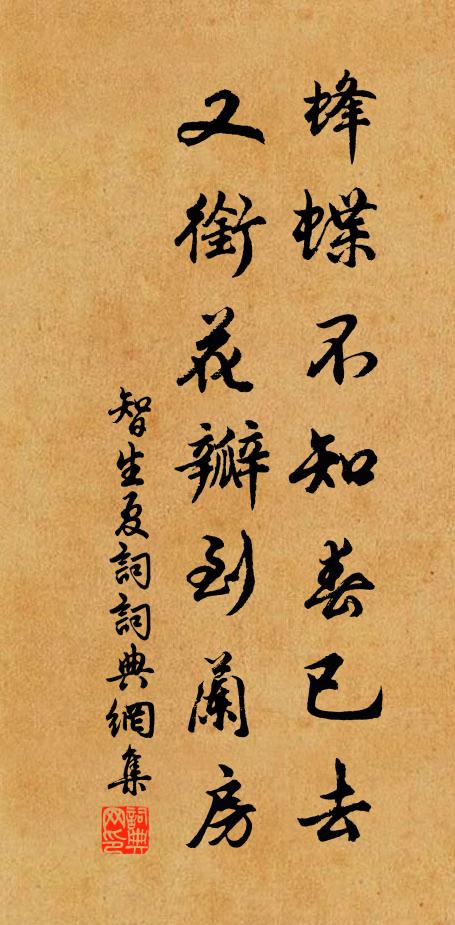 蜂蝶不知春已去
又銜花瓣到蘭房
智生夏詞詞典網集
詞典網印